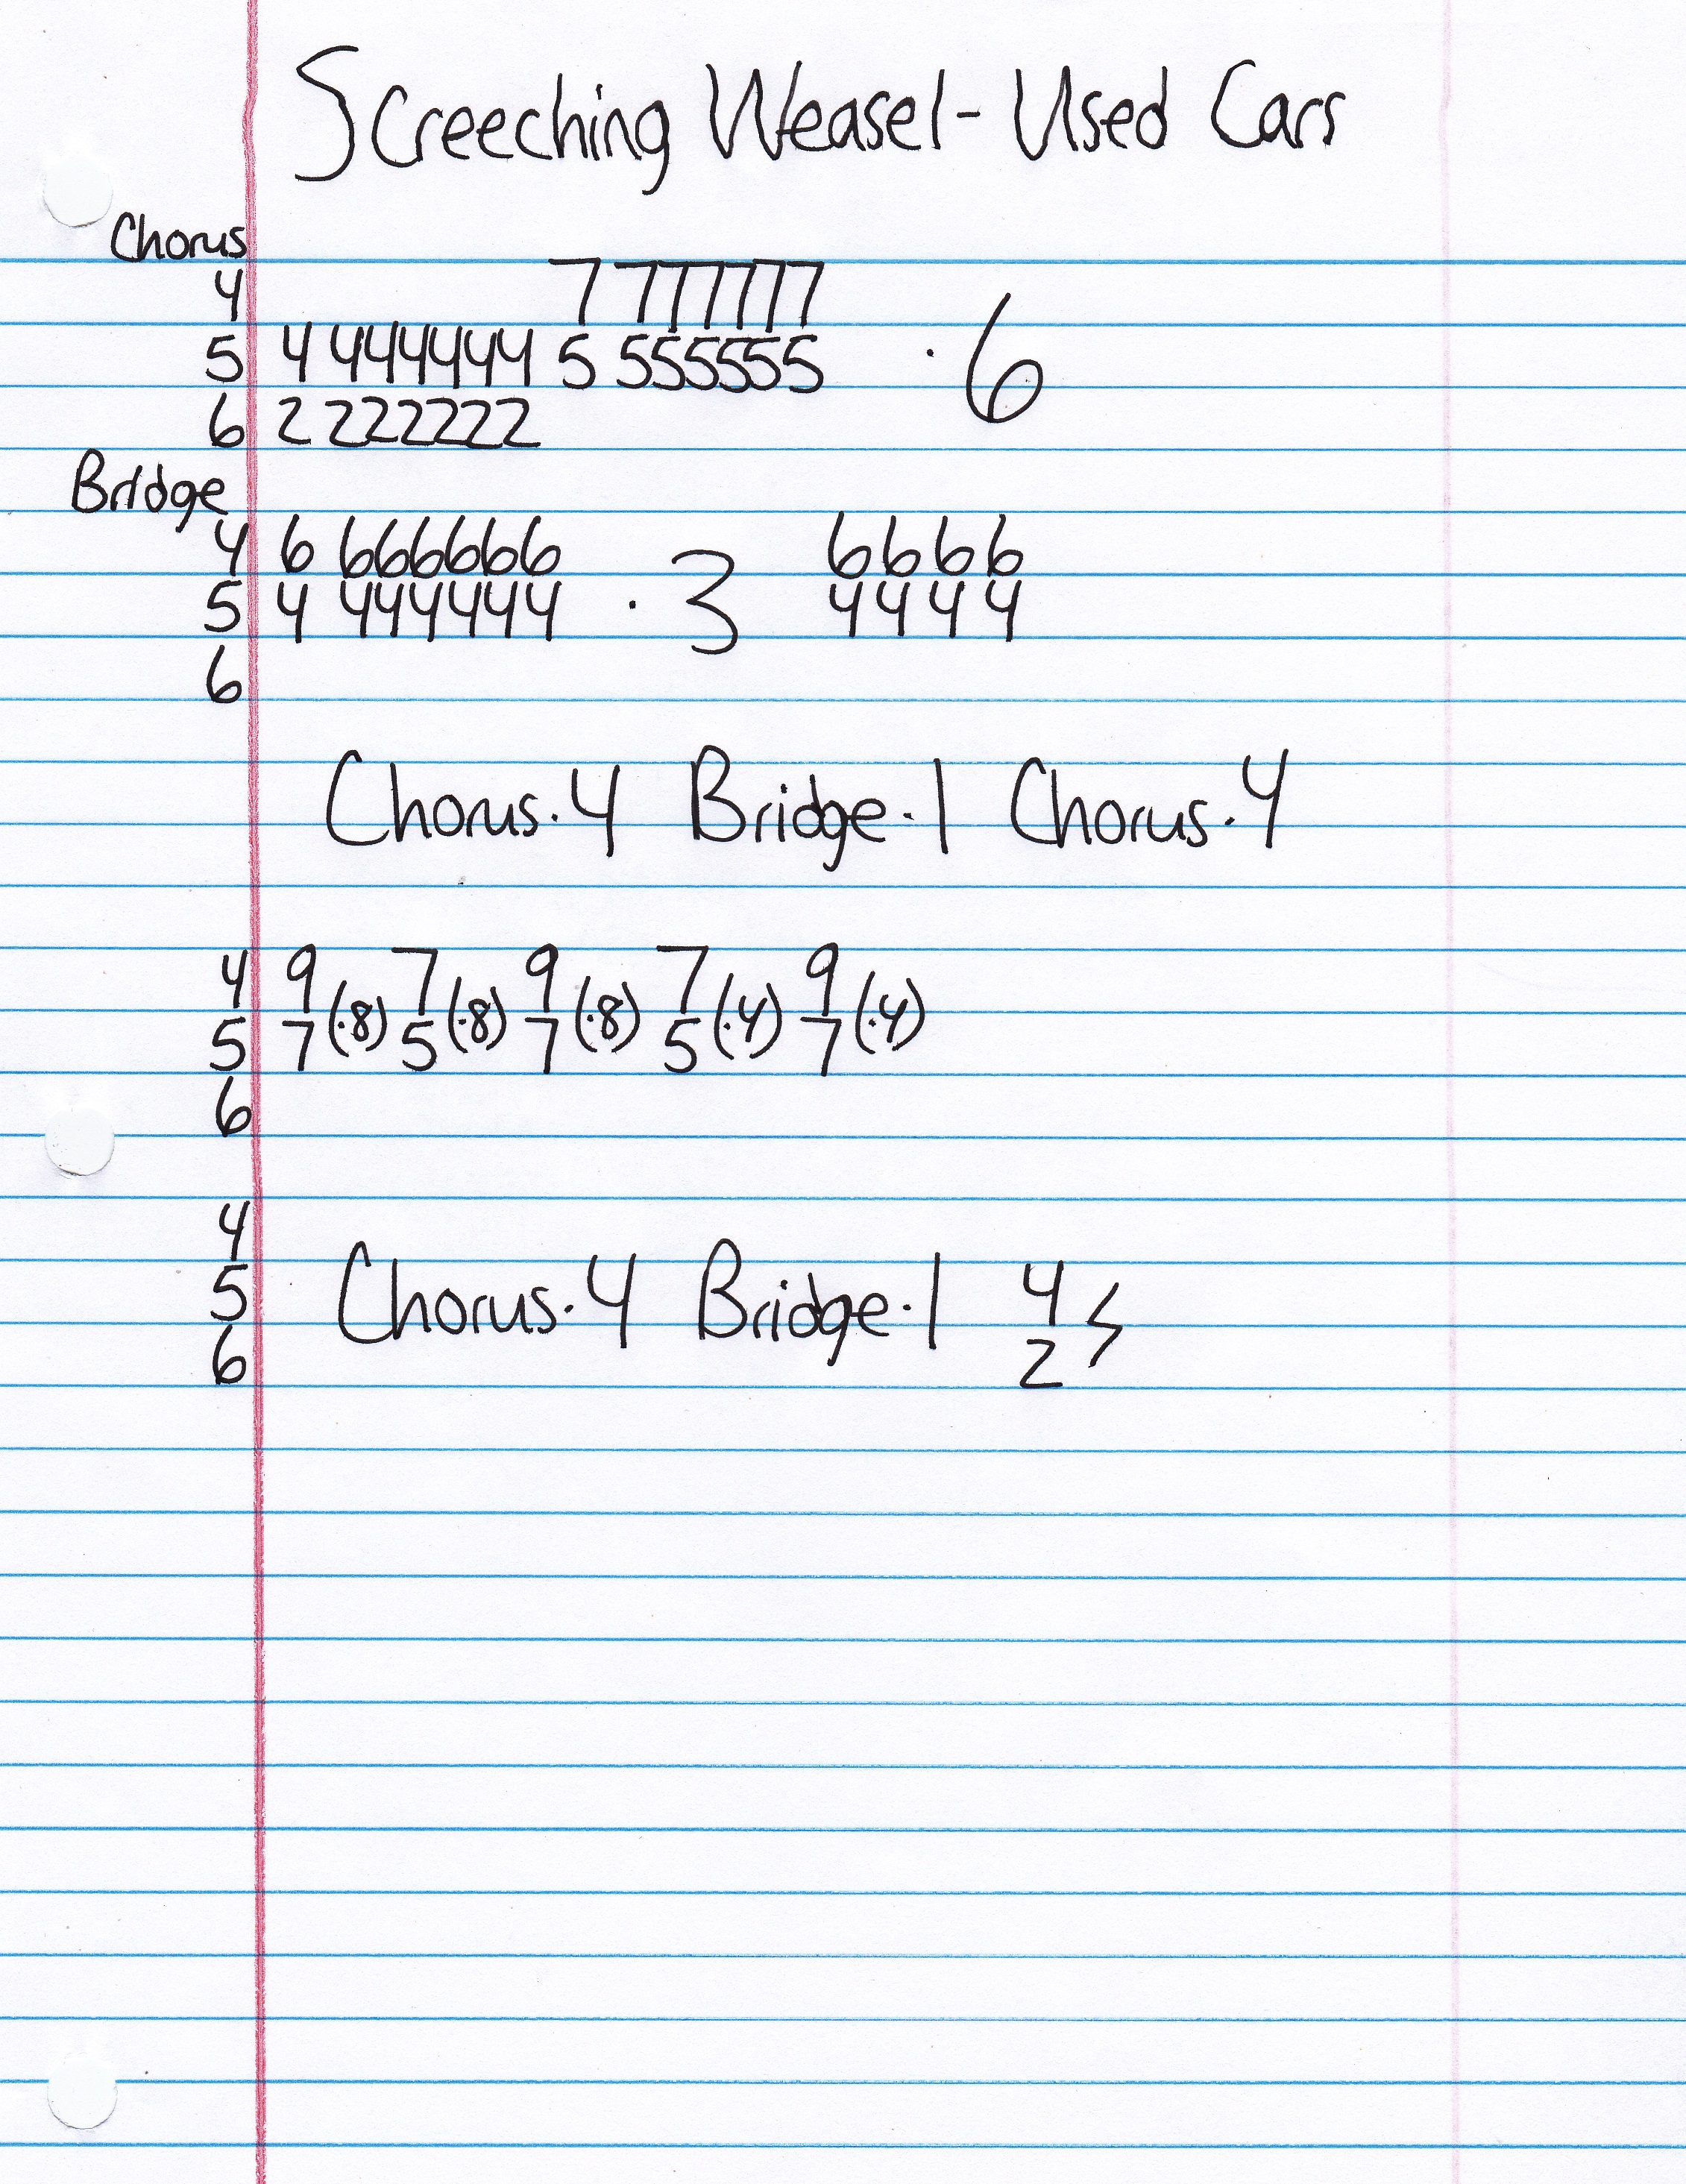 Screeching Weasel - Used Cars
Chorus
4 7 777777
5 4 444444 5 555555 · 6
6 2 222222
Bridge
4 6 666666 6666
5 4 444444 · 3 4444
6
Chorus·4 Bridge·1 Chorus·4
4 9 7 9 7 9
(·8) (·8) (·8) (·4) (·4)
5 7 5 7 5 7
6
4
5 Chorus·4 Bridge·1 4
6 2